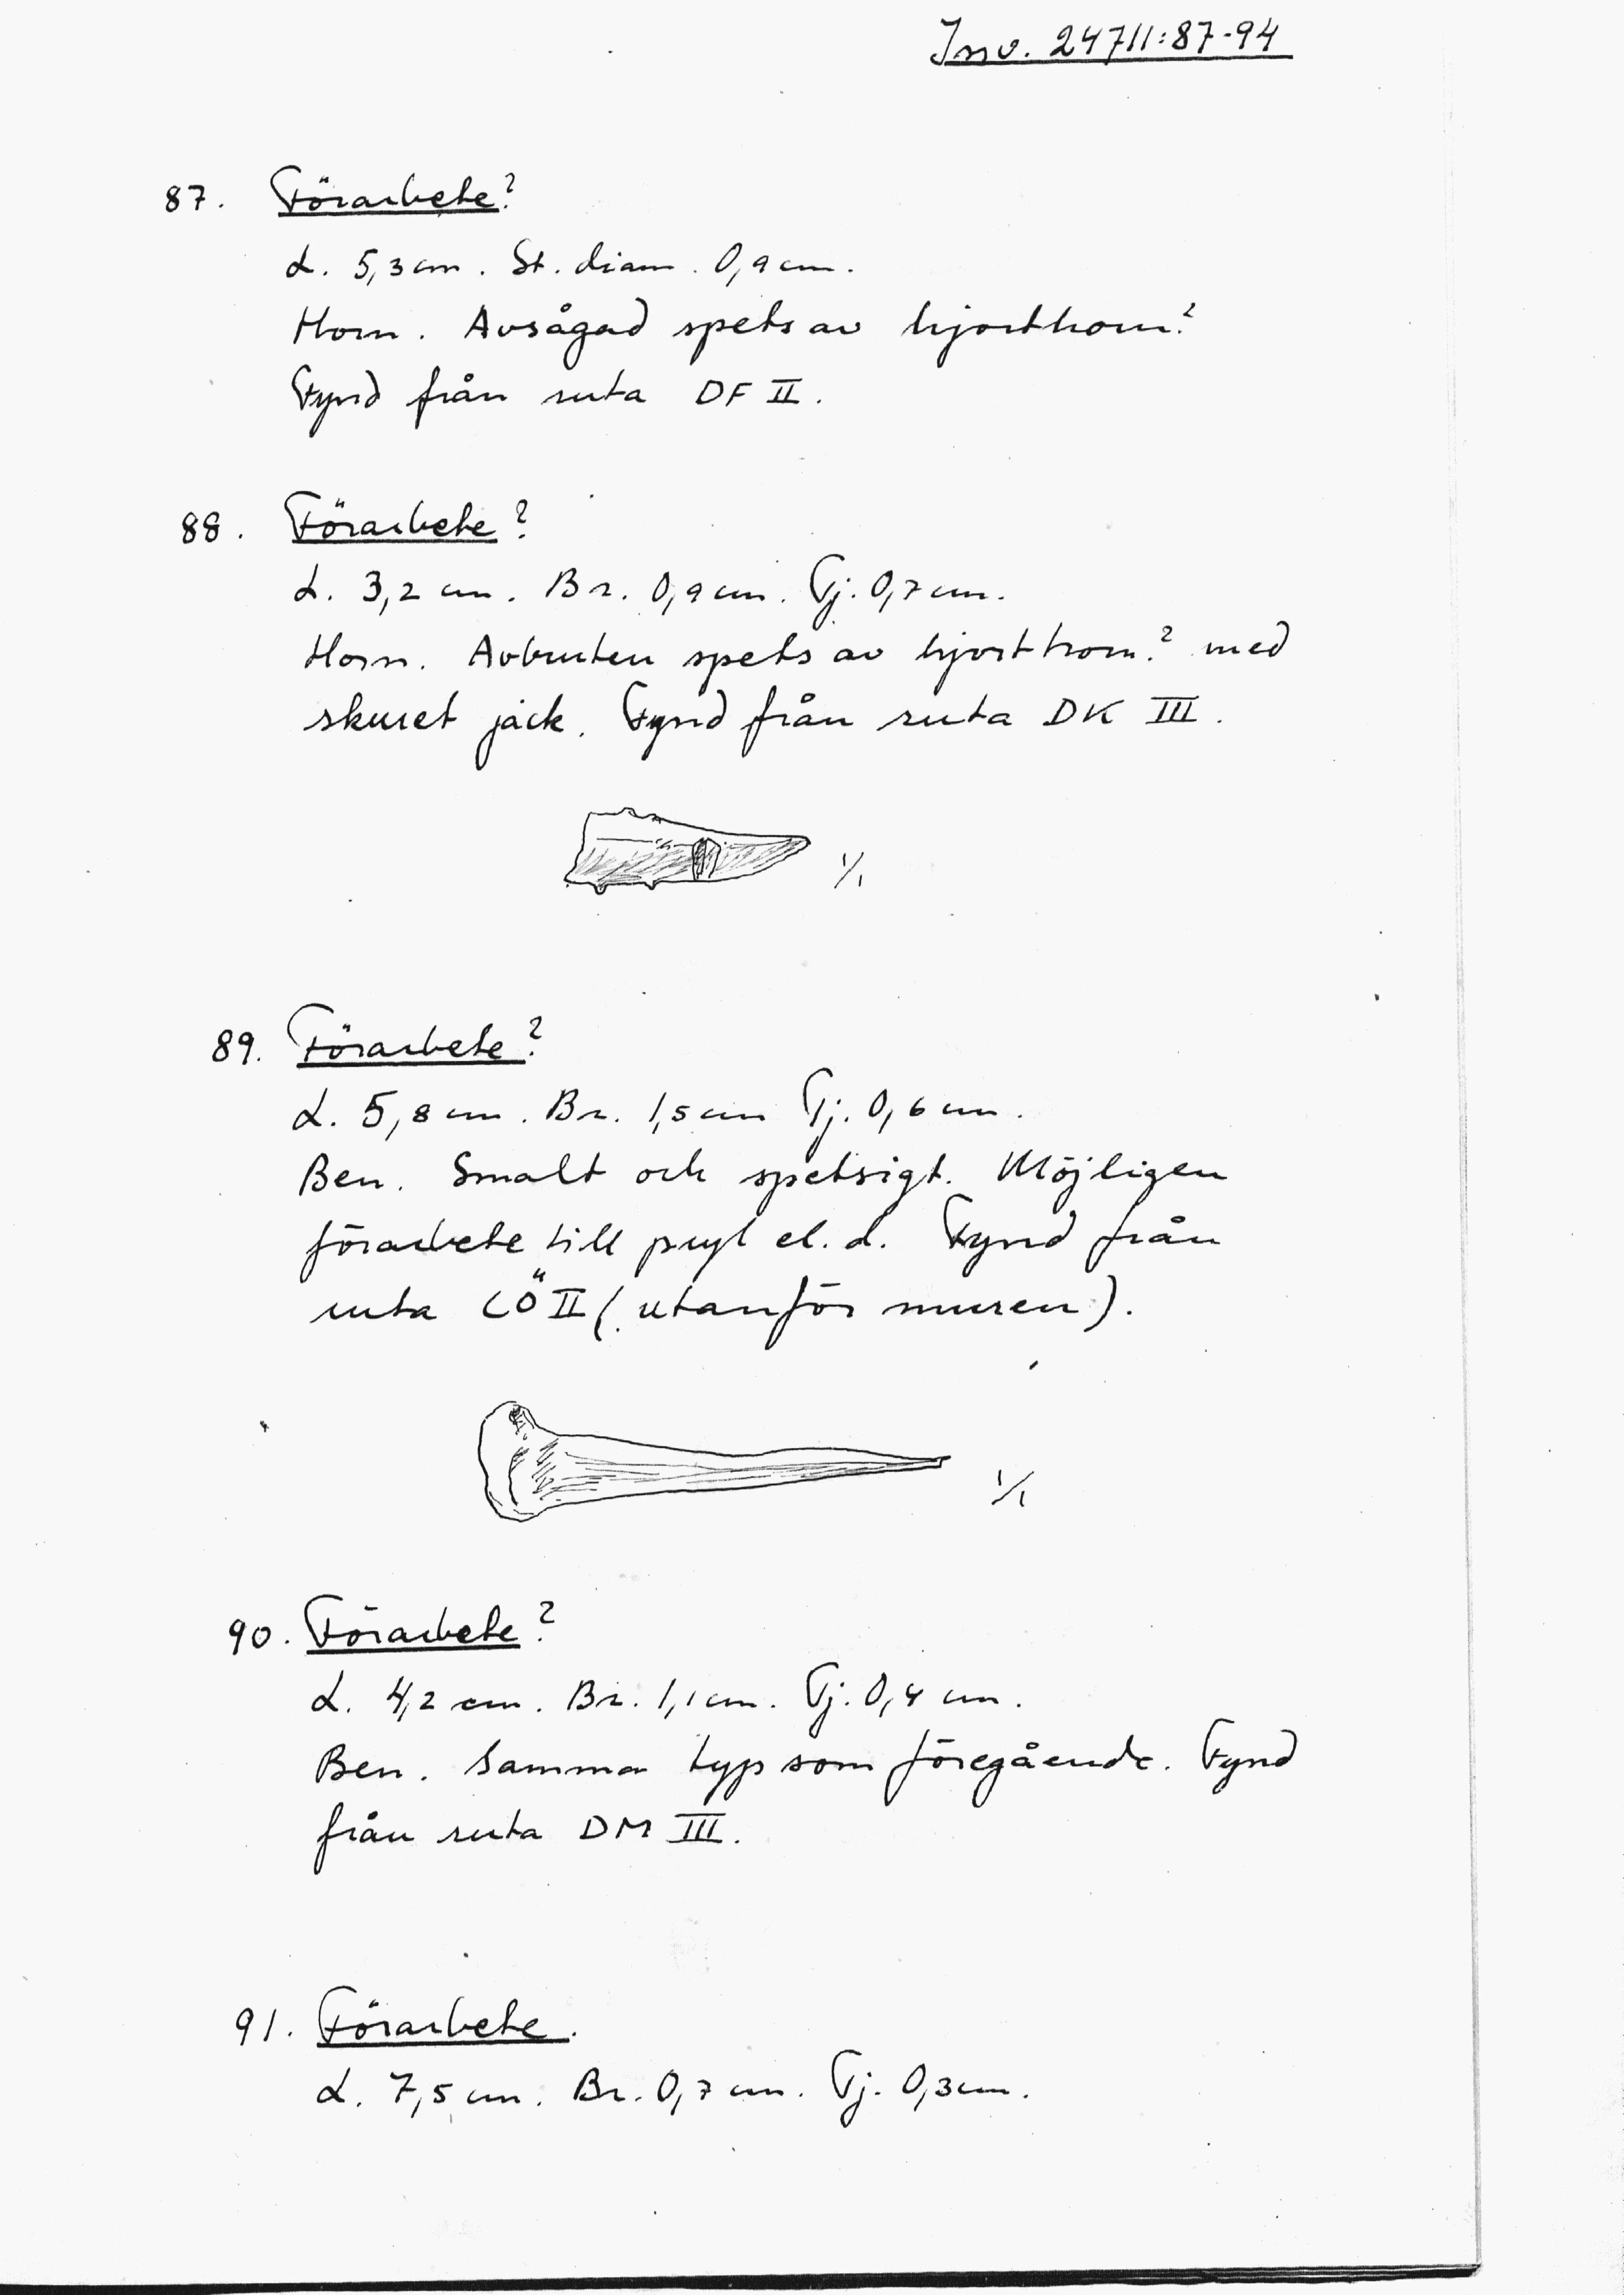 Inv. 24711:87-94
87. Förarbete?
L. 5,3 cm. St. diam. 0,9 cm.
Horn. Avsågad spets av hjorthorn?
Fynd från ruta DF II.
88. Förarbete?
L. 3,2 cm. Br. 0,9 cm. Tj. 0,7 cm.
Horn. Avbruten spets av hjorthorn? med
skuret jack. Fynd från ruta DK III.
1/1
89. Förarbete?
L. 5,8 cm. Br. 1,5 cm Tj. 0,6 cm.
Ben. Smalt och spetsigt. Möjligen
förarbete till pryl el. d. Fynd från
ruta CÖ II (utanför muren).
1/1
90. Förarbete?
L. 4,2 cm. Br. 1,1 cm. Tj. 0,4 cm.
Ben. Samma typ som föregående. Fynd
från ruta DM III.
91. Förarbete.
L. 7,5 cm. Br. 0,7 cm. Tj. 0,3 cm.